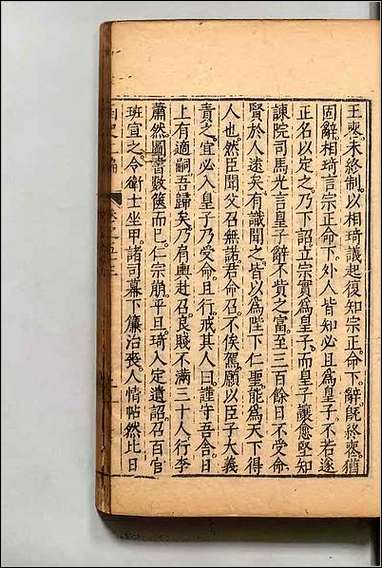 王喪未終制以相琦議起復知宗正命下辭旣終喪猶
固辭相琦言宗正命下外人皆知必且爲皇子不若遂
正名以定之乃下詔立宗實爲皇子而皇子讓愈堅知
諫院司馬光言皇子辭不貲之富至三百餘日不受命
賢於人遠矣有識聞之皆以爲陛下仁聖能爲天下得
人也然臣聞父召無諾君命召不俟駕願以臣子大義
責之宜必入皇子乃受命且行戒其人曰謹守吾舍日
上有適嗣吾歸矣乃肩輿赴召良賤不滿三十人行李
蕭然圖書數篋而已仁宗崩平旦琦入定遺詔召百官
班宣之令衛士坐甲諸司幕下簾治喪人情帖然比日